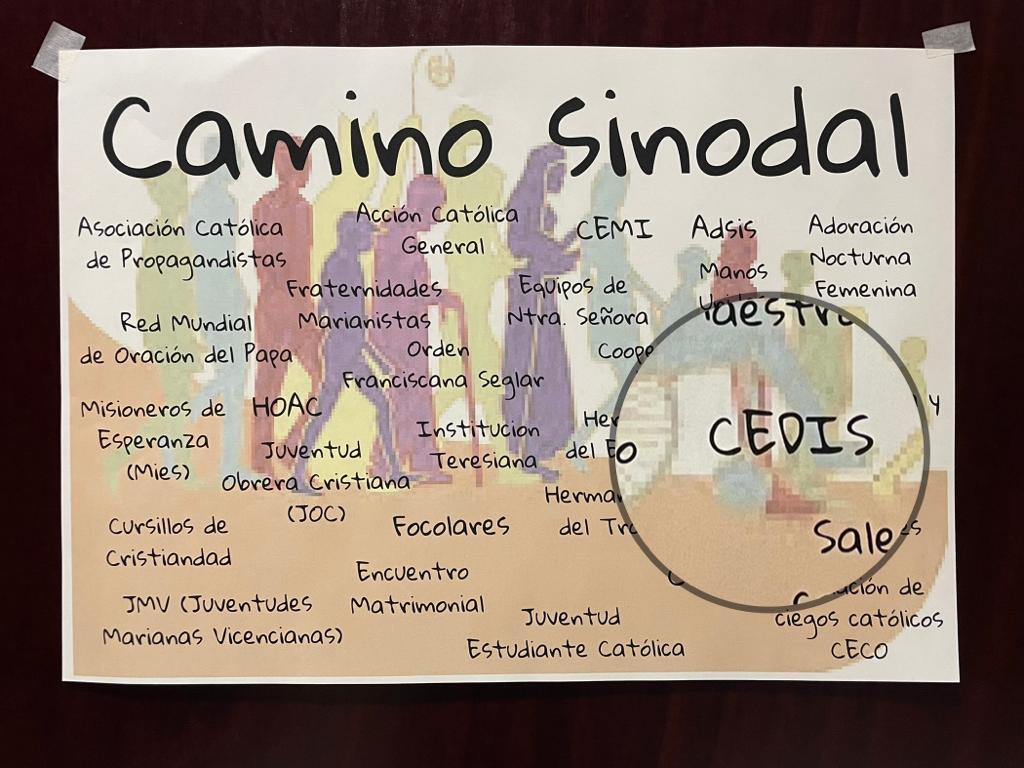 Camino Sinodal
Asociación Católica
de Propagandistas
Acción Católica
General
CEMI
Adsis
Adoración
Nocturna
Femenina
Manos
Fraternidades
Marianistas
Equipos de
Ntra. Señora
Red Mundial
de Oración del Papa
Orden
Franciscana Seglar
Misioneros de
Esperanza
(Mies)
HOAC
Juventud
Obrera Cristiana
(JOC)
Institucion
Teresiana
del
y
CEDIS
Cursillos de
Cristiandad
Focolares
del
Encuentro
Matrimonial
JMV (Juventudes
Marianas Vicencianas)
Juventud
Estudiante Católica
de
ciegos católicos
CECO